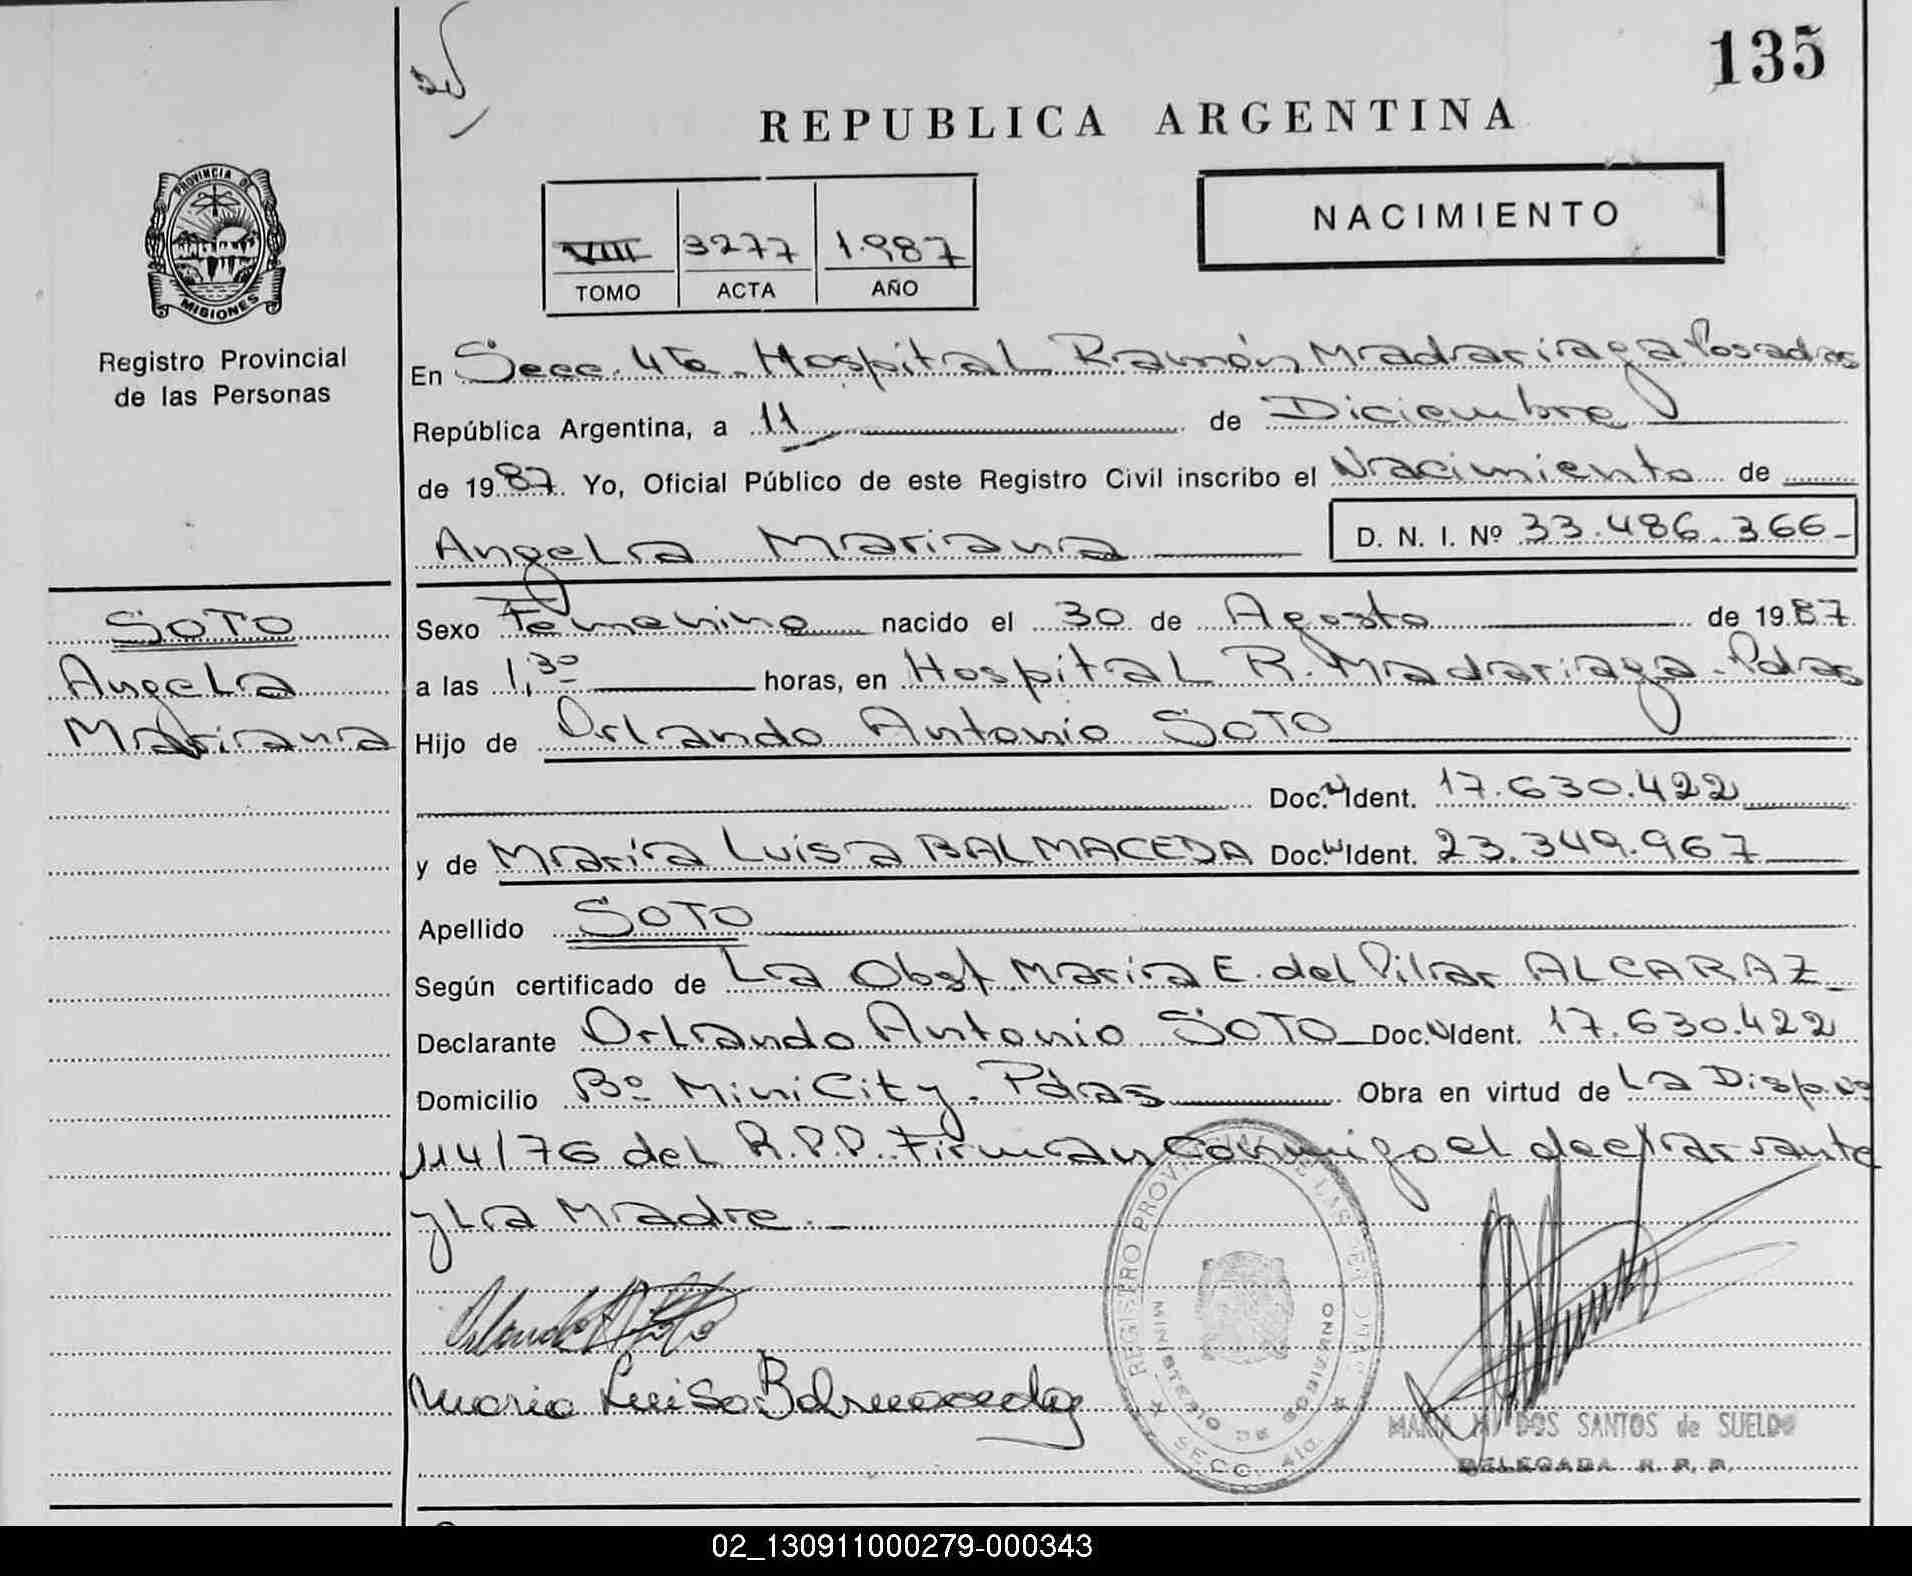 135
REPUBLICA ARGENTINA
NACIMIENTO
VIII 3277 1.987
TOMO ACTA AÑO
PROVINCIA DE
MISIONES
Registro Provincial
de las Personas
En Secc. 4ta. Hospital Ramón Madariaga Posadas
República Argentina, a 11 de Diciembre
de 1987. Yo, Oficial Público de este Registro Civil inscribo el Nacimiento de
Angela Mariana D. N. I. Nº 33.486.366-
SOTO
Angela
Mariana
Sexo Femenino nacido el 30 de Agosto de 1987.
a las 1,30 horas, en Hospital R. Madariaga. Pdas
Hijo de Orlando Antonio SOTO
Doc. N Ident. 17.630.422
y de María Luisa BALMACEDA Doc. N Ident. 23.349.967
Apellido SOTO
Según certificado de La Obst. María E. del Pilar ALCARAZ
Declarante Orlando Antonio SOTO Doc. N Ident. 17.630.422
Domicilio Bº MiniCity. Pdas Obra en virtud de La Disp. Nº
114/76 del R.P.P. Firman Conmigo el declarante
y La Madre.-
Orlando A Soto
Maria Luisa Balmaceda
REGISTRO PROVINCIAL DE LAS PERSONAS
MINISTERIO DE GOBIERNO
SECC. 4ta.
MARIA M. DOS SANTOS de SUELDO
DELEGADA R. P. P.
02_130911000279-000343